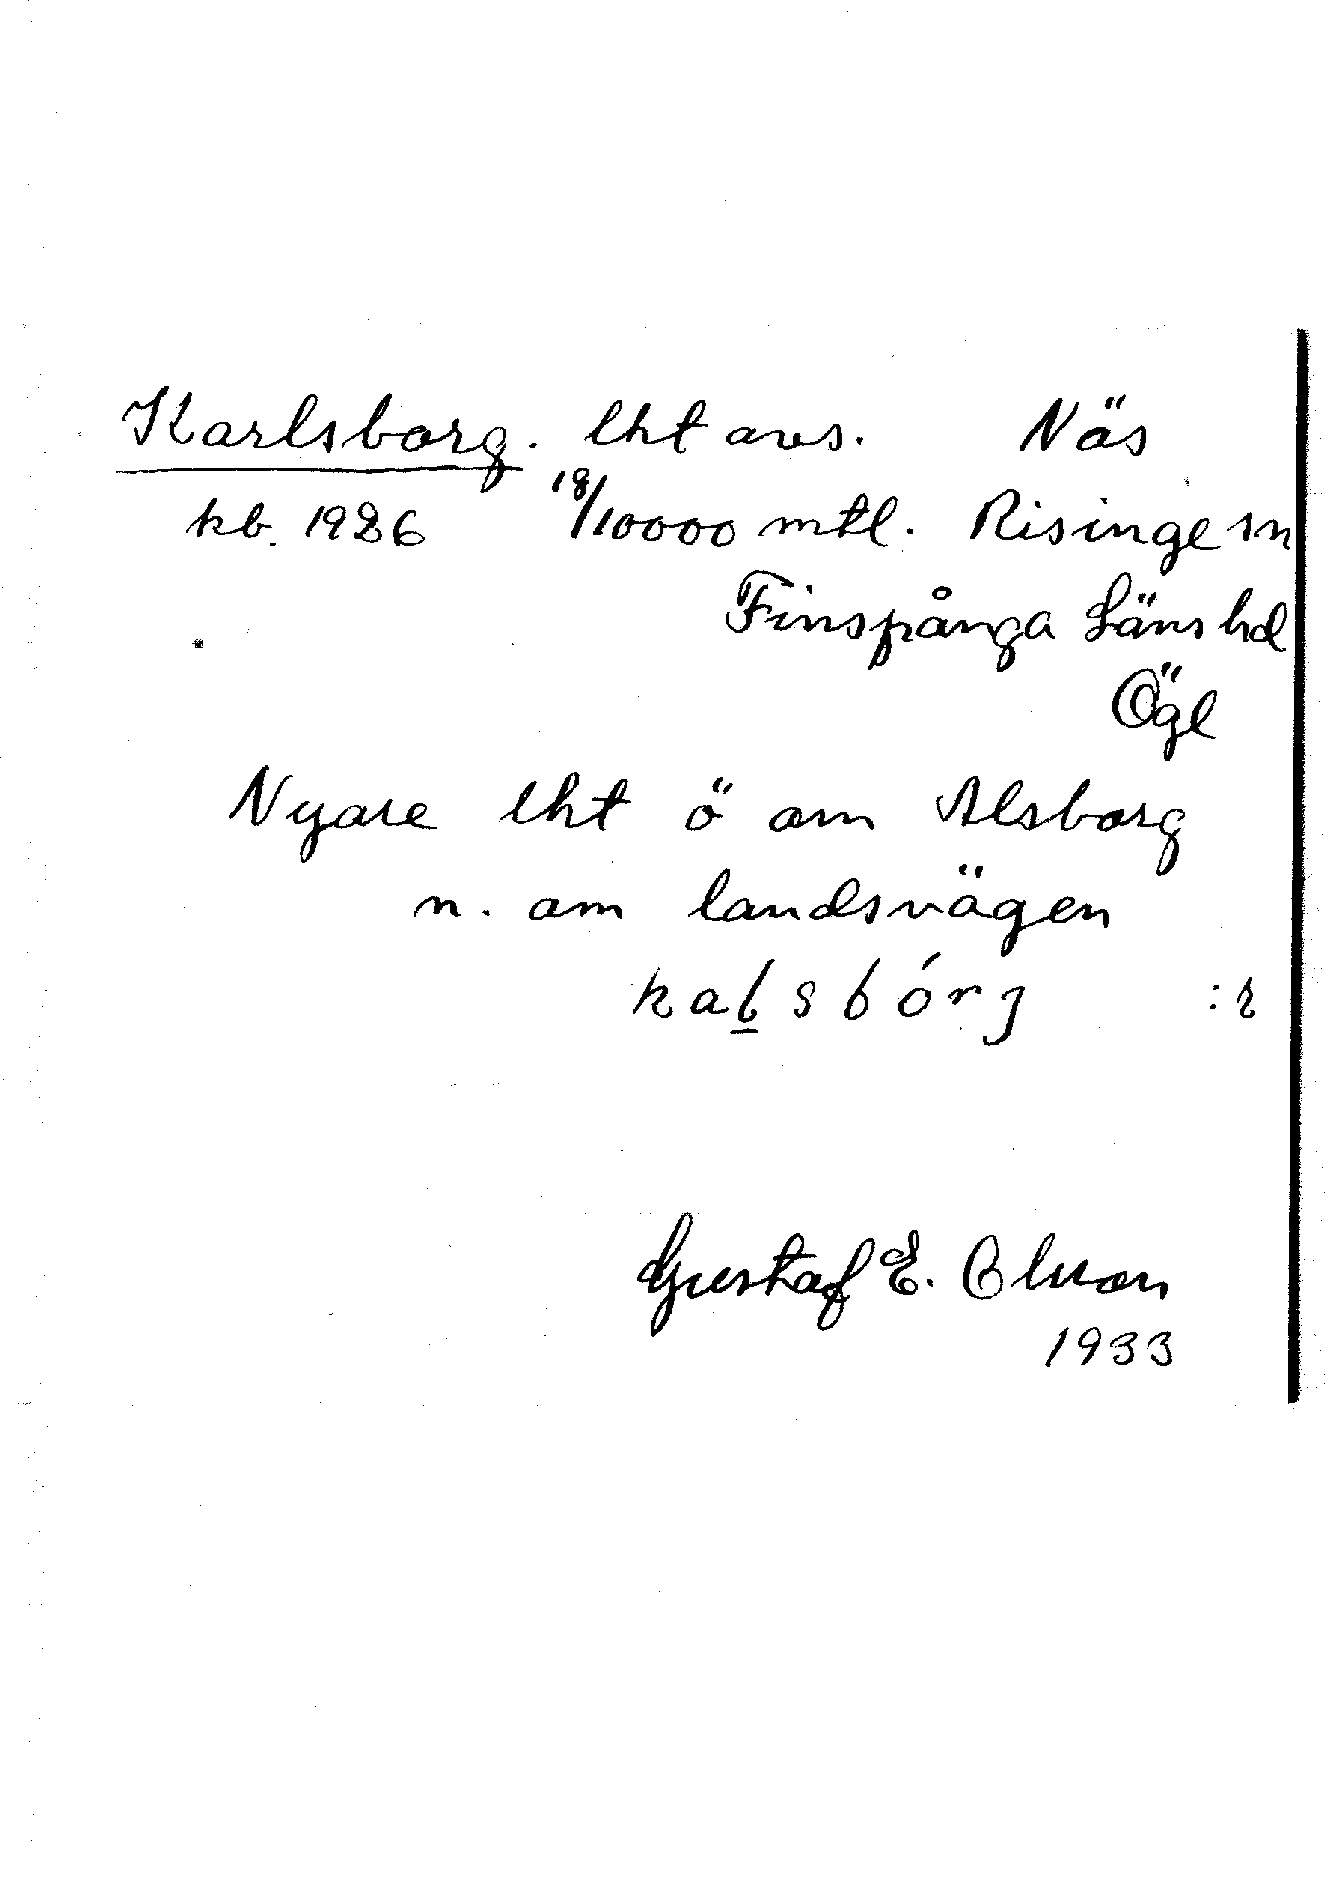 Karlsborg. lht avs. Näs
kb. 1926 18/10000 mtl. Risinge sn
Finspånga Läns hd
Ögl
Nyare lht ö om Alsborg
n. om landsvägen
sbórj
Gustaf E. Olsson
1933